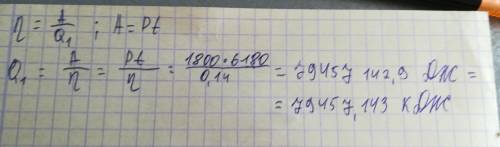 η = A/Q₁ ; A = Pt
Q₁ = A/η = Pt/η = 1800 · 6180/0,14 = 79457 142,9 Дж =
= 79457,143 кДж